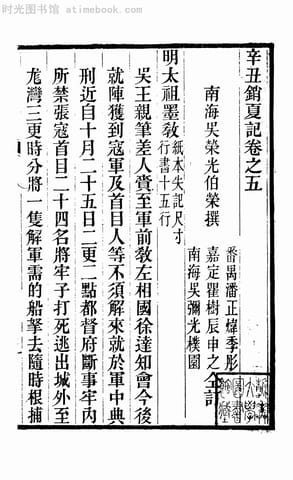 时光图书馆 - atimebook.com
辛丑銷夏記卷之五
南海吳榮光伯榮撰
番禺潘正煒季彤
嘉定瞿樹辰申之
南海吳彌光樸園
仝訂
明太祖墨敎
紙本失記尺寸
行書十五行
吳王親筆差人賷至軍前敎左相國徐達知會今後
就陣獲到寇軍及首目人等不須解來就於軍中典
刑近自十月二十五日二更二點都督府斷事牢內
所禁張寇首目二十四名將牢子打死逃出城外至
龍灣三更時分將一隻解軍需的船拏去隨時根捕